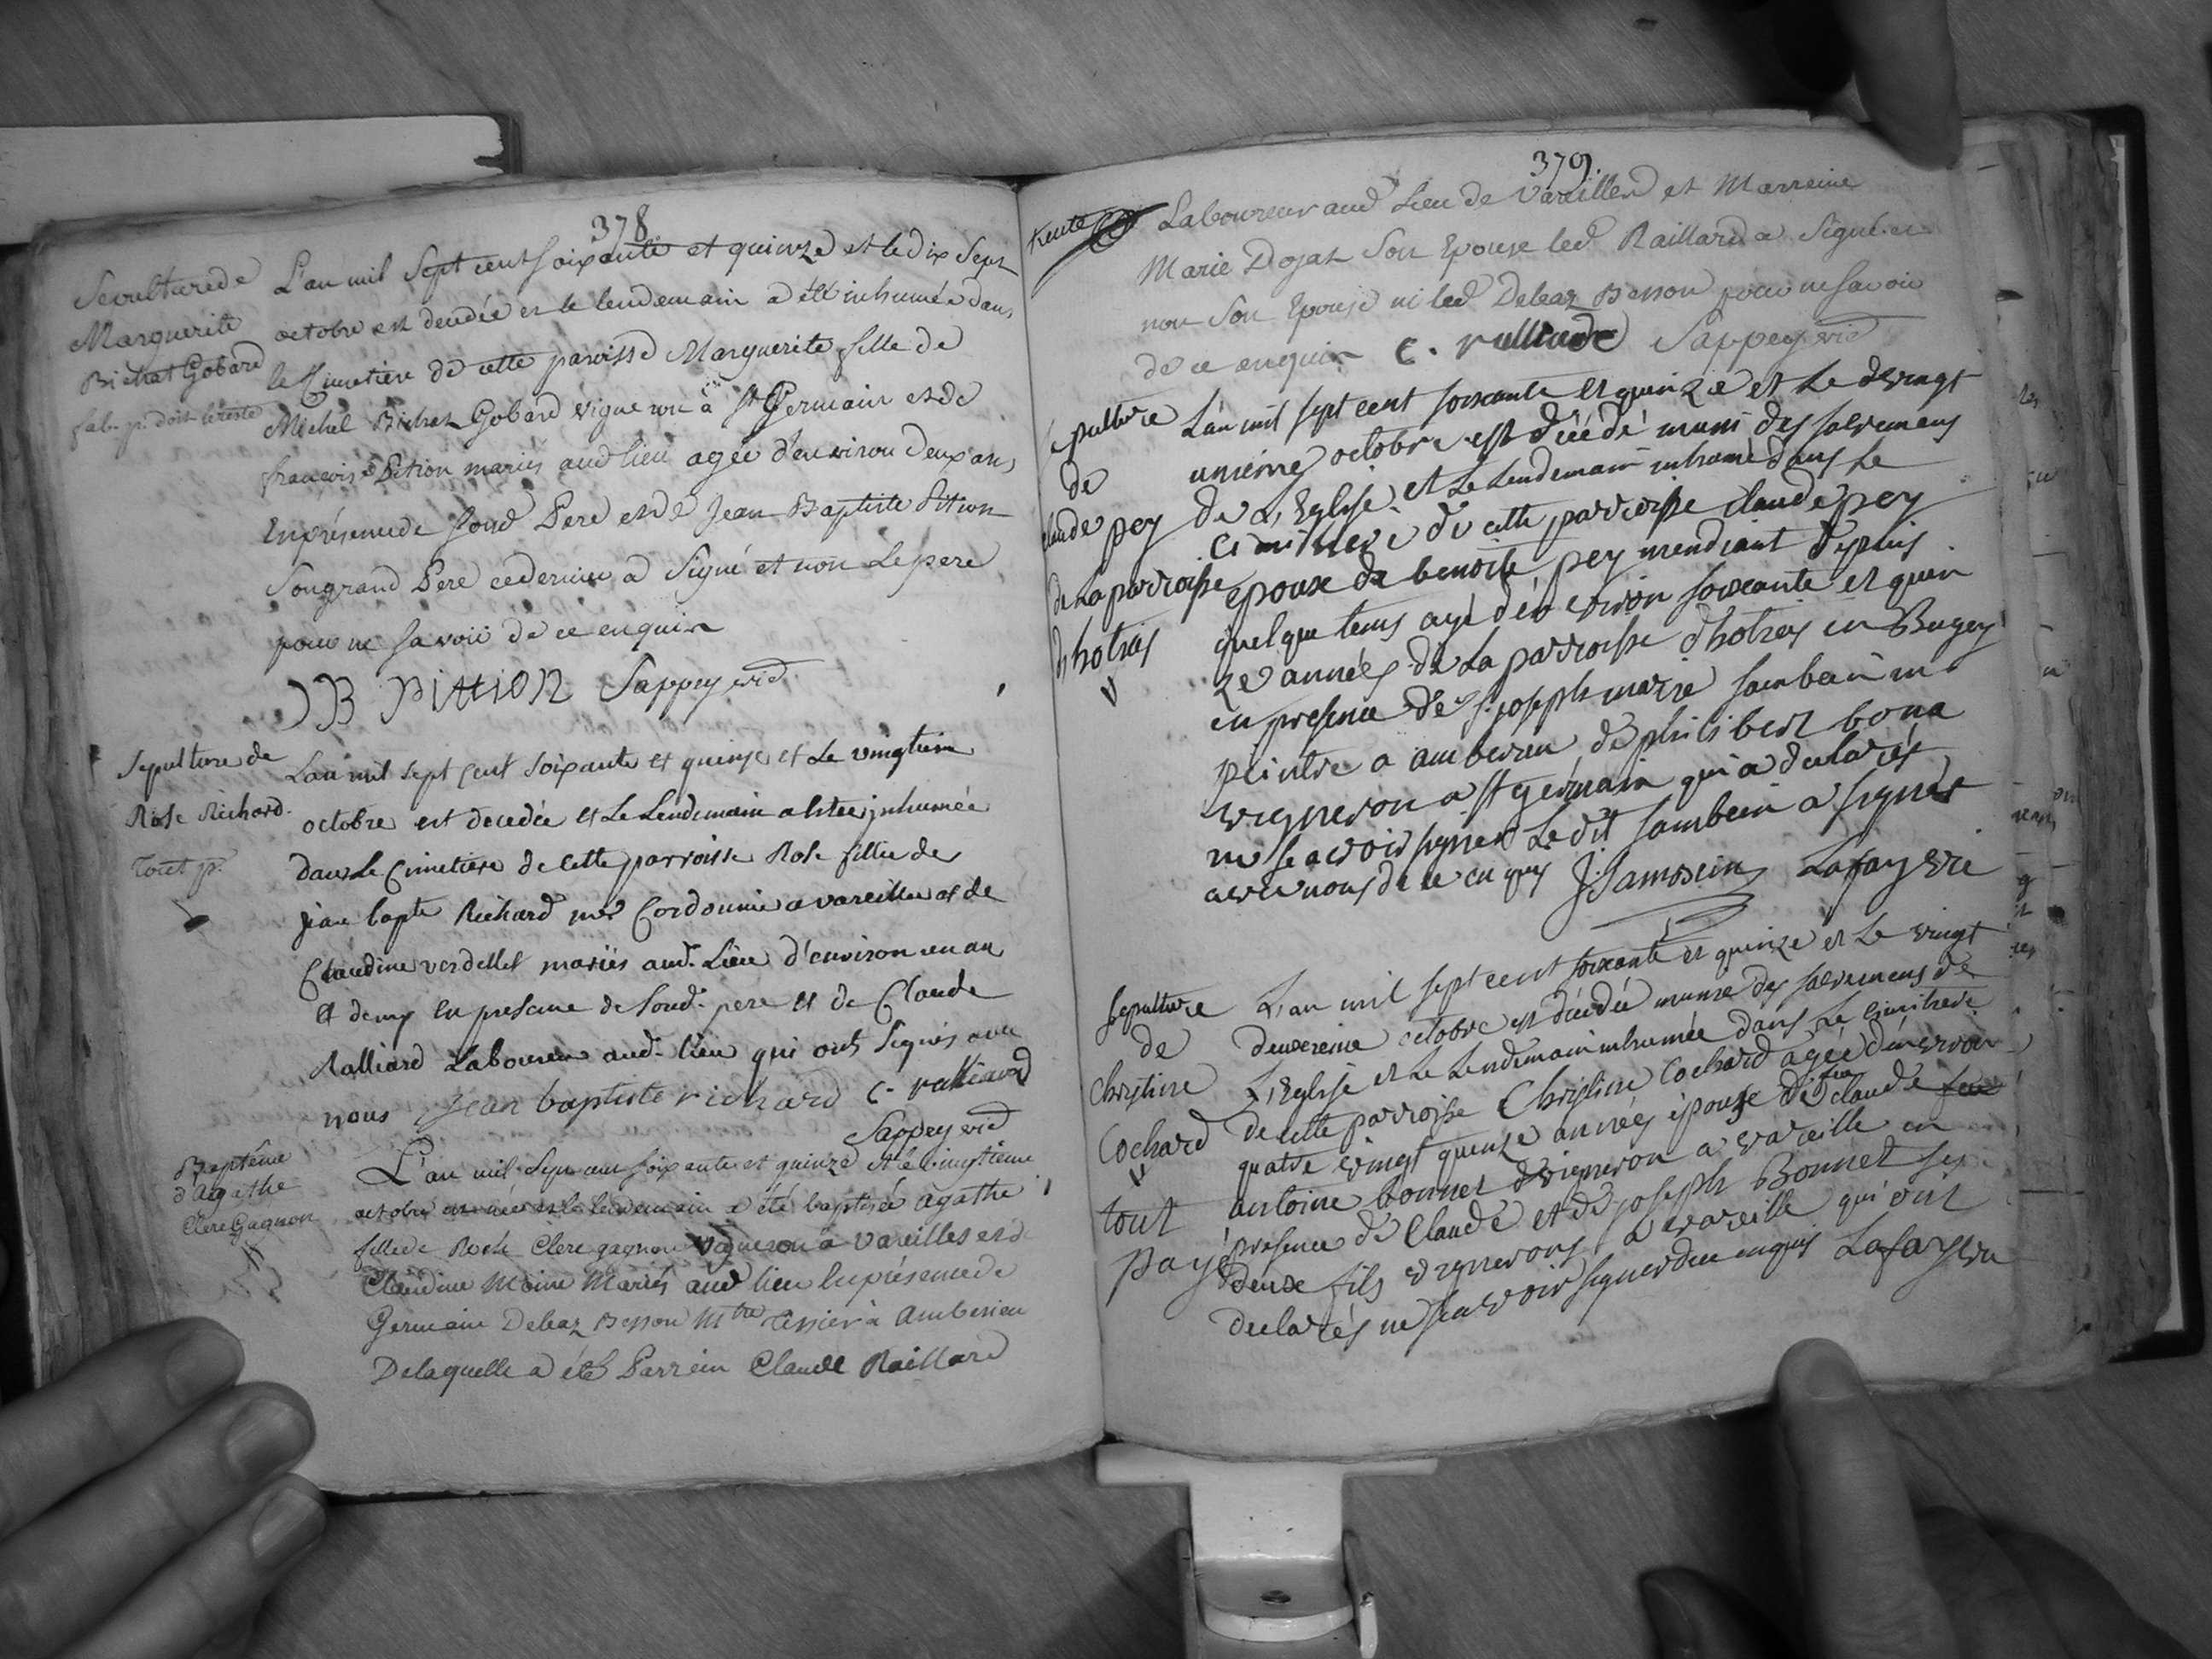 378
Sepulture de
Marguerite
Bichat Gobard
fab. p. doit le reste
L'an mil Sept cent soixante et quinze et le dix Sept
octobre est decedée et le lendemain a été inhumée dans
le Cimetiere de cette paroisse Marguerite fille de
Michel Bichat Gobard vigneron à St Germain et de
françoise Pition mariés aud lieu agée d'environ deux ans
En présence de Soud Pere et de Jean Baptiste Pition
Son grand Pere ce dernier a Signé et non Le pere
pour ne Savoir de ce enquis
JB Pittion Sappey vic
Sepulture de
Rose Richard.
Tout p.
L'an mil sept cent soixante et quinze et Le vingtieme
octobre est decedée et Le Lendemain a estee inhumée
dans Le Cimetiere de cette parroisse Rose fille de
jean bapte Richard me Cordonnier a vareilles et de
Claudine verdellet mariés aud. Lieu d'environ un an
et demy en presence de Soud. pere et de Claude
Ralliard Laboureur aud. lieu qui ont Signés avec
nous jean baptiste richard C. ralliard
Sappey vic
Baptême
d'Agathe
Clere Gagnon
L'an mil Sept cent soixante et quinze et le vingtieme
octobre est née et le lendemain a été baptisée agathe
fille de Roch Clere gagnon Vigneron à Vareilles et de
Claudine Moine Mariés aud lieu En présence de
Germain Deleaz Besson Mtre Tissier à Amberieu
De laquelle a été Parrein Claude Raillard
379.
Laboureur aud Lieu de Vareilles et Marreine
Marie Dojat Son Epouse led Raillard a Signé et
non Son Epouse ni led Deleaz Besson pour ne Savoir
de ce enquis C. ralliard Sappey vic
sepulture
de
claude pey
de la parroisse
d'hotries
L'an mil sept cent soixante et quinze et Le vingt
unieme octobre est décédé muni des sacremens
de L'Eglise et Le Lendemain inhumé dans Le
cimithere de cette parroisse claude pey
epoux de benoite pey mendiant depuis
quelque tems agé d'environ soixante et quin
ze années de La parroisse d'hotries en Bugey
en presence de s. joseph marie sambein me
peintre a amberieu de philibert bona
vigneron a st germain qui a declarés
ne scavoir signer Le dit sambein a signés
avec nous de ce enquis J Sambein Lafay vic
Sepulture
de
Christine
Cochard
tout
payé
L'an mil sept cent soixante et quinze et Le vingt
deuxieme octobre est décédée munie des sacremens de
L'Eglise et Le Lendemain inhumée dans Le cimithere
de cette parroisse Christine Cochard agée d'environ
quatre vingt quinze années épouse de feu claude
antoine bonnet vigneron a vareille en
presence de Claude et de joseph Bonnet ses
deux fils vignerons a vareille qui ont
declarés ne scavoir signer de ce enquis Lafay vic